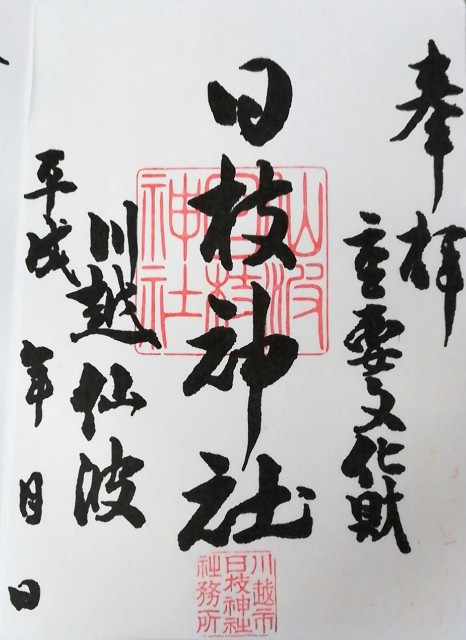 奉拝
重要文化財
日枝神社
川越仙波
平成 年 月 日
仙波
日枝
神社
川越市
日枝神社
社務所